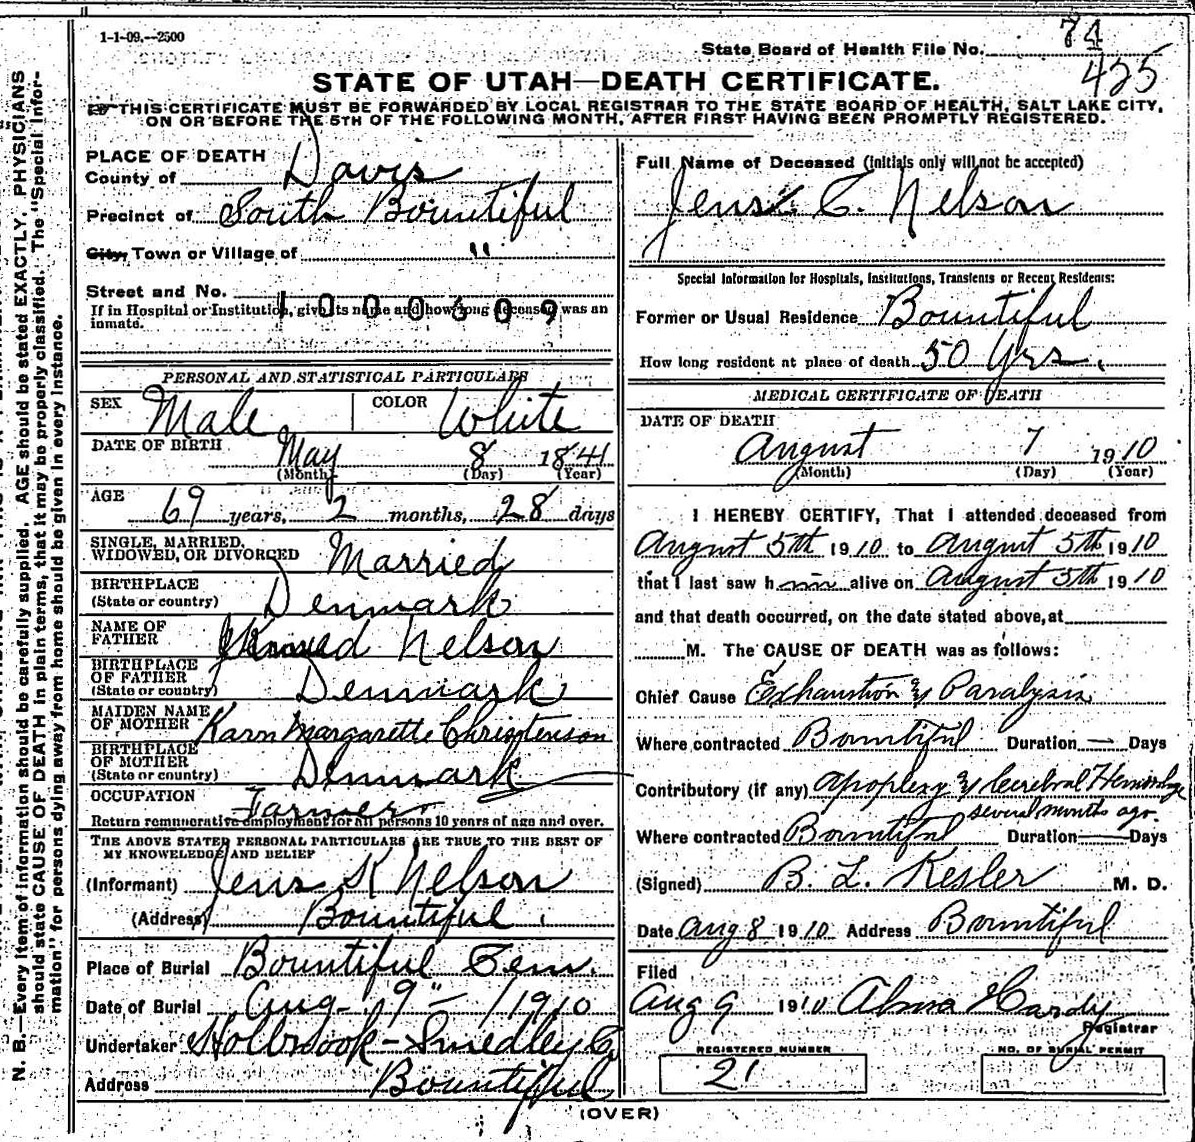 1-1-09.--2500
State Board of Health File No. 74
425
STATE OF UTAH—DEATH CERTIFICATE.
THIS CERTIFICATE MUST BE FORWARDED BY LOCAL REGISTRAR TO THE STATE BOARD OF HEALTH, SALT LAKE CITY,
ON OR BEFORE THE 5TH OF THE FOLLOWING MONTH, AFTER FIRST HAVING BEEN PROMPTLY REGISTERED.
PLACE OF DEATH
County of Davis
Precinct of South Bountiful
City, Town or Village of "
Street and No.
1000309
If in Hospital or Institution, give its name and how long deceased was an
inmate.
PERSONAL AND STATISTICAL PARTICULARS
SEX Male COLOR White
DATE OF BIRTH May 8 1841
(Month) (Day) (Year)
AGE 69 years, 2 months, 28 days
SINGLE, MARRIED,
WIDOWED, OR DIVORCED Married
BIRTHPLACE
(State or country) Denmark
NAME OF
FATHER Nelson
BIRTHPLACE
OF FATHER
(State or country) Denmark
MAIDEN NAME
OF MOTHER Karn Margarette Christenson
BIRTHPLACE
OF MOTHER
(State or country) Denmark
OCCUPATION Farmer
Return remunerative employment for all persons 10 years of age and over.
THE ABOVE STATED PERSONAL PARTICULARS ARE TRUE TO THE BEST OF
MY KNOWELEDGE AND BELIEF
(Informant) Jens K Nelson
(Address) Bountiful.
Place of Burial Bountiful Cem.
Date of Burial Aug - 9" - 1910
Undertaker Holbrook - Smedley Co
Address Bountiful
Full Name of Deceased (initials only will not be accepted)
Jens C. Nelson
Special Information for Hospitals, Institutions, Transients or Recent Residents:
Former or Usual Residence Bountiful
How long resident at place of death 50 Yrs.
MEDICAL CERTIFICATE OF DEATH
DATE OF DEATH
August 7 1910
(Month) (Day) (Year)
I HEREBY CERTIFY, That I attended deceased from
August 5th 1910 to August 5th 1910
that I last saw h im alive on August 5th 1910
and that death occurred, on the date stated above, at
M. The CAUSE OF DEATH was as follows:
Chief Cause Exhaustion & Paralysis
Where contracted Bountiful Duration — Days
Contributory (if any) Apoplexy & Cerebral Hemorrhage
several months ago.
Where contracted Bountiful Duration — Days
(Signed) B. L. Kesler M. D.
Date Aug 8 1910 Address Bountiful
Filed
Aug 9 1910 Alma Hardy
Registrar
REGISTERED NUMBER
21
NO. OF BURIAL PERMIT
(OVER)
N. B.—Every item of information should be carefully supplied. AGE should be stated EXACTLY. PHYSICIANS
should state CAUSE OF DEATH in plain terms, that it may be properly classified. The "Special Infor-
mation" for persons dying away from home should be given in every instance.